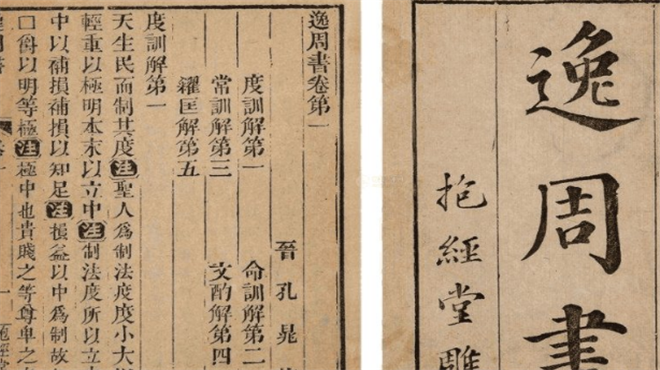 逸周書
抱經堂雕
逸周書卷第一
晉孔晁
度訓解第一 命訓解第二
常訓解第三 文酌解第四
糴匡解第五
度訓解第一
天生民而制其度注聖人爲制法度度小大
輕重以極明本末以立中注制法度所以立
中以補損補損以知足注損益以中爲制故
□爵以明等極注極中也貴賤之等尊卑之